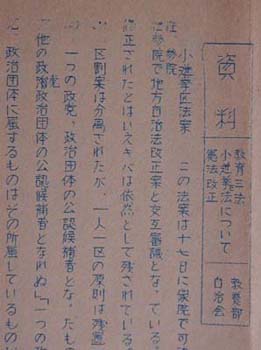 資料
教育三法
小選挙法について
憲法改正
教養部
自治会
小選挙区法案 この法案は十七日に衆院で可
参院
参院で地方自治法改正案と交互審議となっている
修正されたとはいえキバは依然として残されている
区割案は分离されたが、一人一区の原則は残置
一つの政党、政治団体の公認候補者となったも
党
「他の政治政治団体の公認候補者となれぬ」「一つの政
政治団体に属するものはその所属しているもの